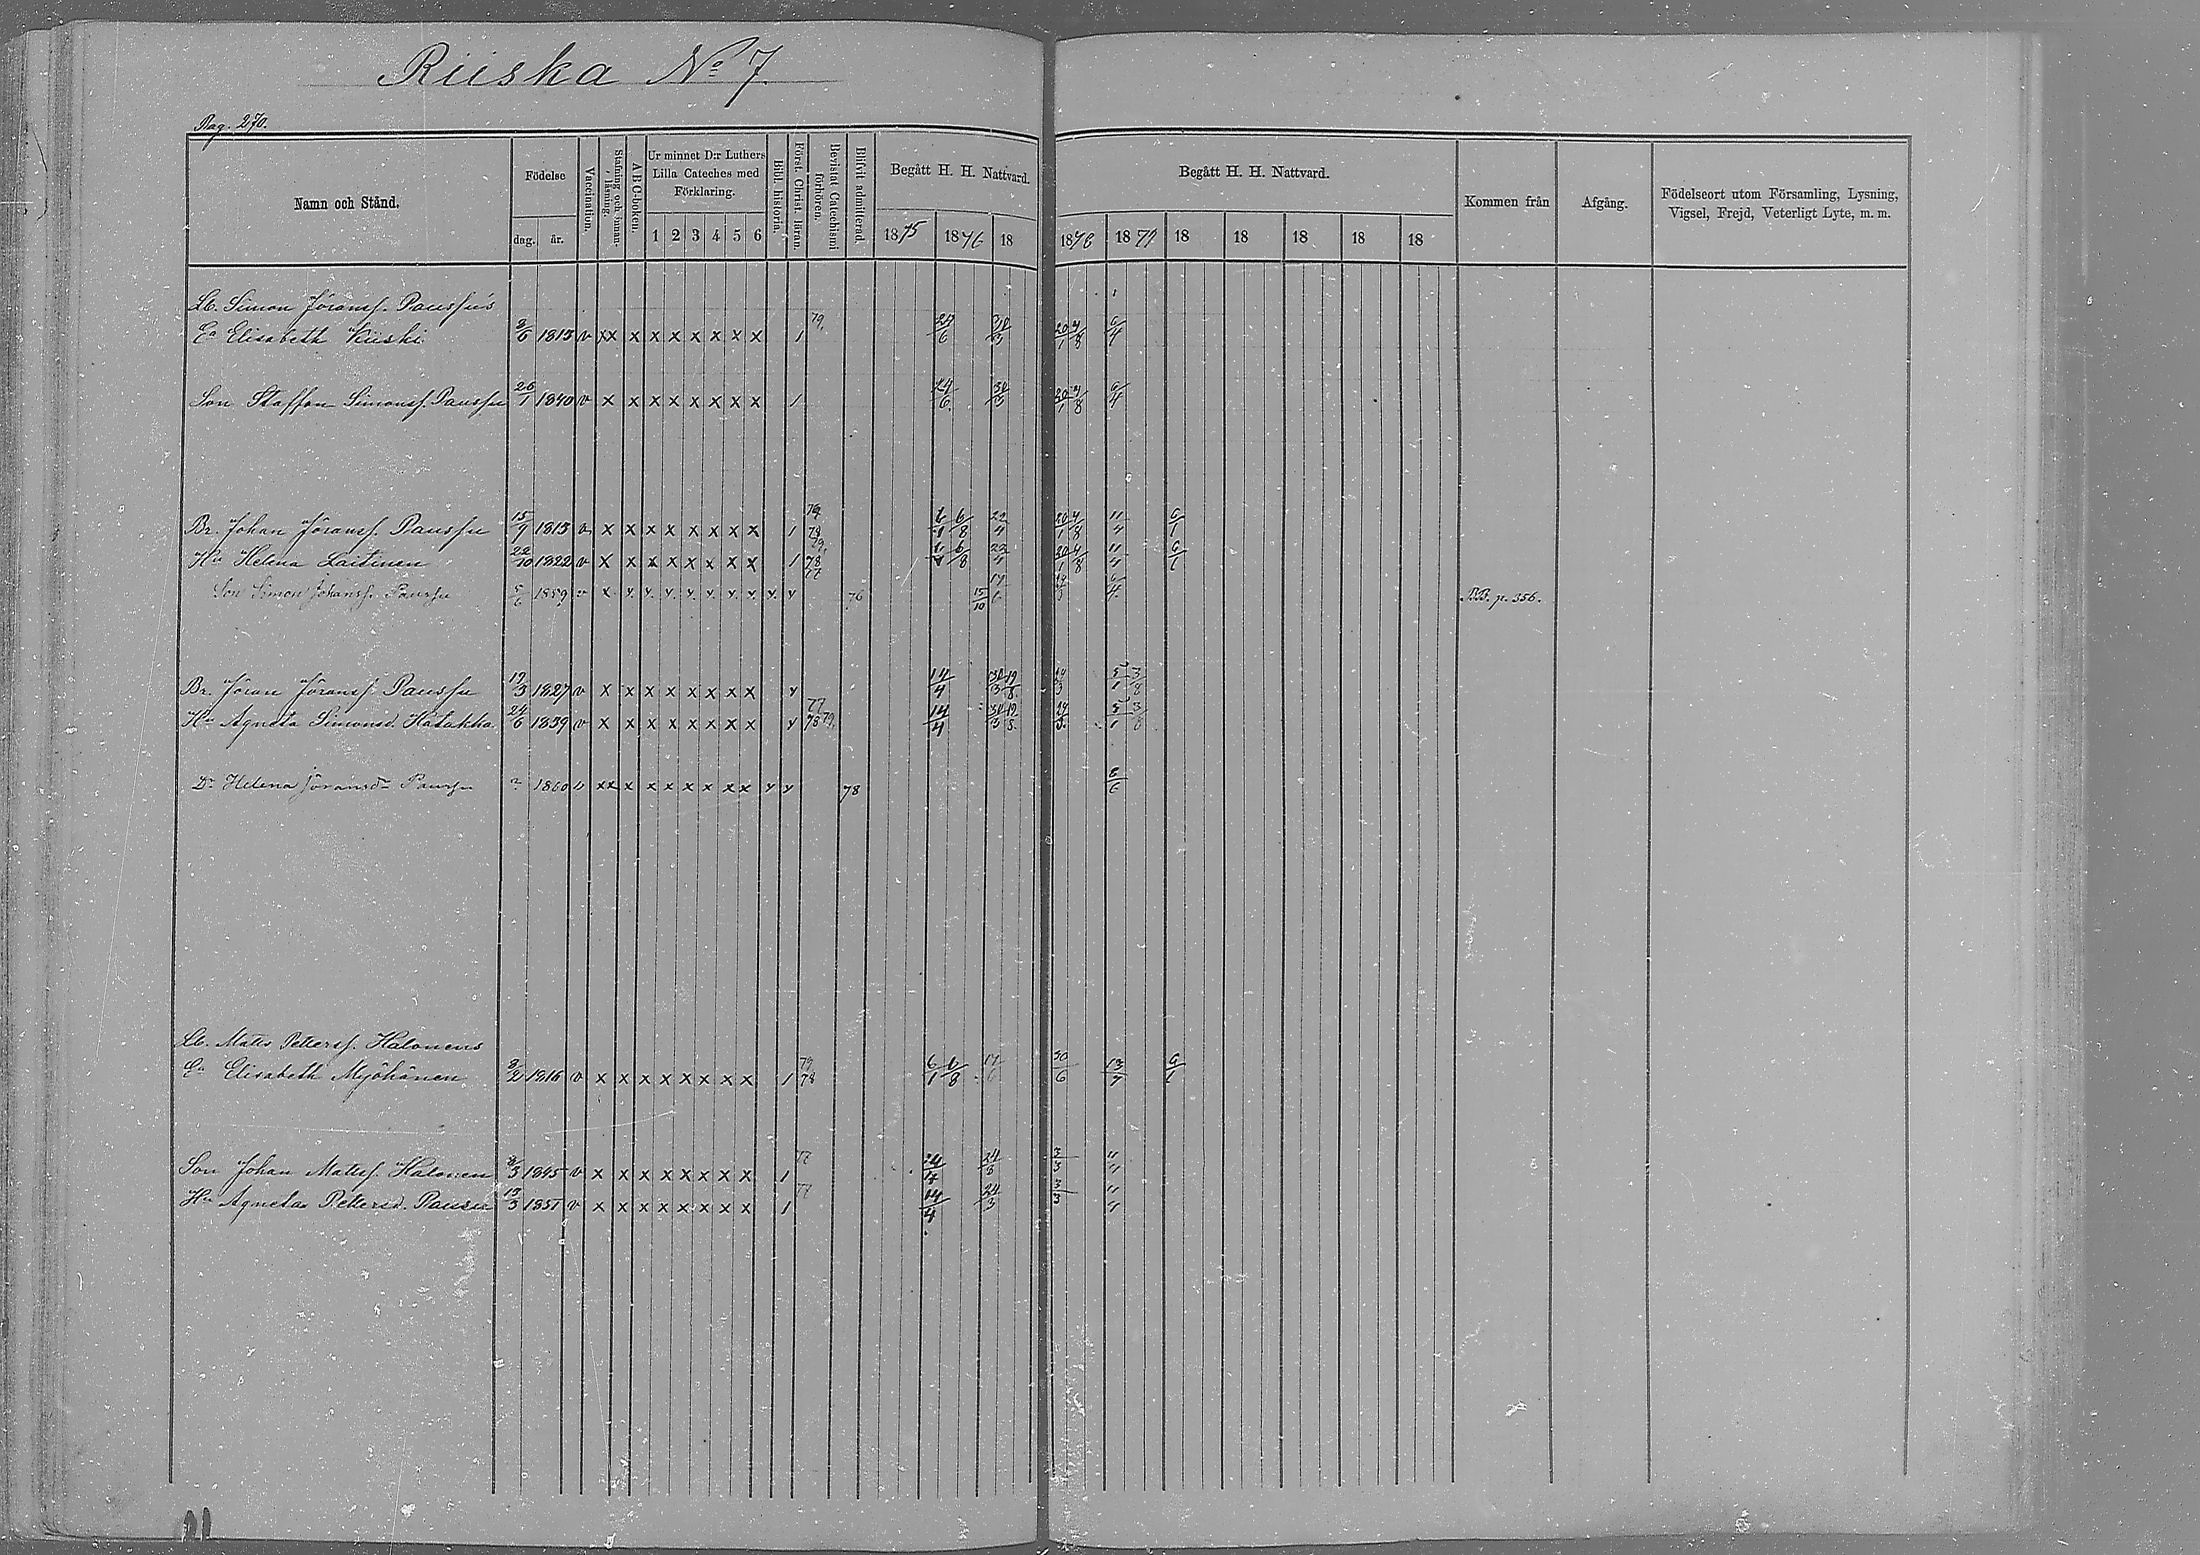 Riiska No 7.
Pag. 270.
Namn och Stånd.
Födelse
dag. år.
Vaccination.
Stafning och innan-läsning.
A B C-boken.
Ur minnet D:r Luthers Lilla Cateches med Förklaring.
1 2 3 4 5 6
Bibl. historia.
Först. Christ. läran.
Bevistat Catechismi förhören.
Blifvit admitterad.
Begått H. H. Nattvard.
1875 1876 18
Begått H. H. Nattvard.
1878 1879 18 18 18 18 18
Kommen från
Afgång.
Födelseort utom Församling, Lysning, Vigsel, Frejd, Veterligt Lyte, m. m.
Lb. Simon Jöranss. Paussu's
Ea Elisabeth Kiiski 3/6 1815 v xx x x x x x x x 1 79. 24/6 30/3 20/1 4/8 6/4
Son Staffan Simonss. Paussu 26/1 1840 v x x x x x x x x 1 24/6 30/3 20/1 4/8 6/4
Br. Johan Jöranss. Paussu 15/9 1813 v x x x x x x x x 1 79 78 6/1 6/8 22/4 20/1 4/8 11/4 6/1
Hu Helena Laitinen 22/10 1822 v x x x x x x x x 1 79. 78 77 6/1 6/8 22/4 20/1 4/8 11/4 6/1
Son Simon Johanss. Paussu 5/6 1859 v x x x x x x x x x x 76 15/10 17/6 6/4 BB. p. 356.
Br. Jöran Jöranss. Paussu 19/3 1827 v x x x x x x x x x 14/4 30/3 19/8 24/3 5/1 3/8
Hu Agneta Simonsd. Hatakka 24/6 1839 v x x x x x x x x x 77 78 79. 14/4 30/3 19/8 24/3 5/1 3/8
Dr Helena Jöransdr Paussu 1860 v xx x x x x x x x x x 78 8/6
Lb. Matts Petterss. Halonens
Ea Elisabeth Myöhänen 3/2 1816 v x x x x x x x x 1 79 78 6/1 6/8 17/6 30/6 13/7 6/1
Son Johan Mattss. Halonen 3/3 1845 v x x x x x x x x 1 77 14/4 24/3 3/3 11/4
Hu Agneta Pettersd. Paussu 13/3 1851 v x x x x x x x x 1 77 14/4 24/3 3/3 11/4